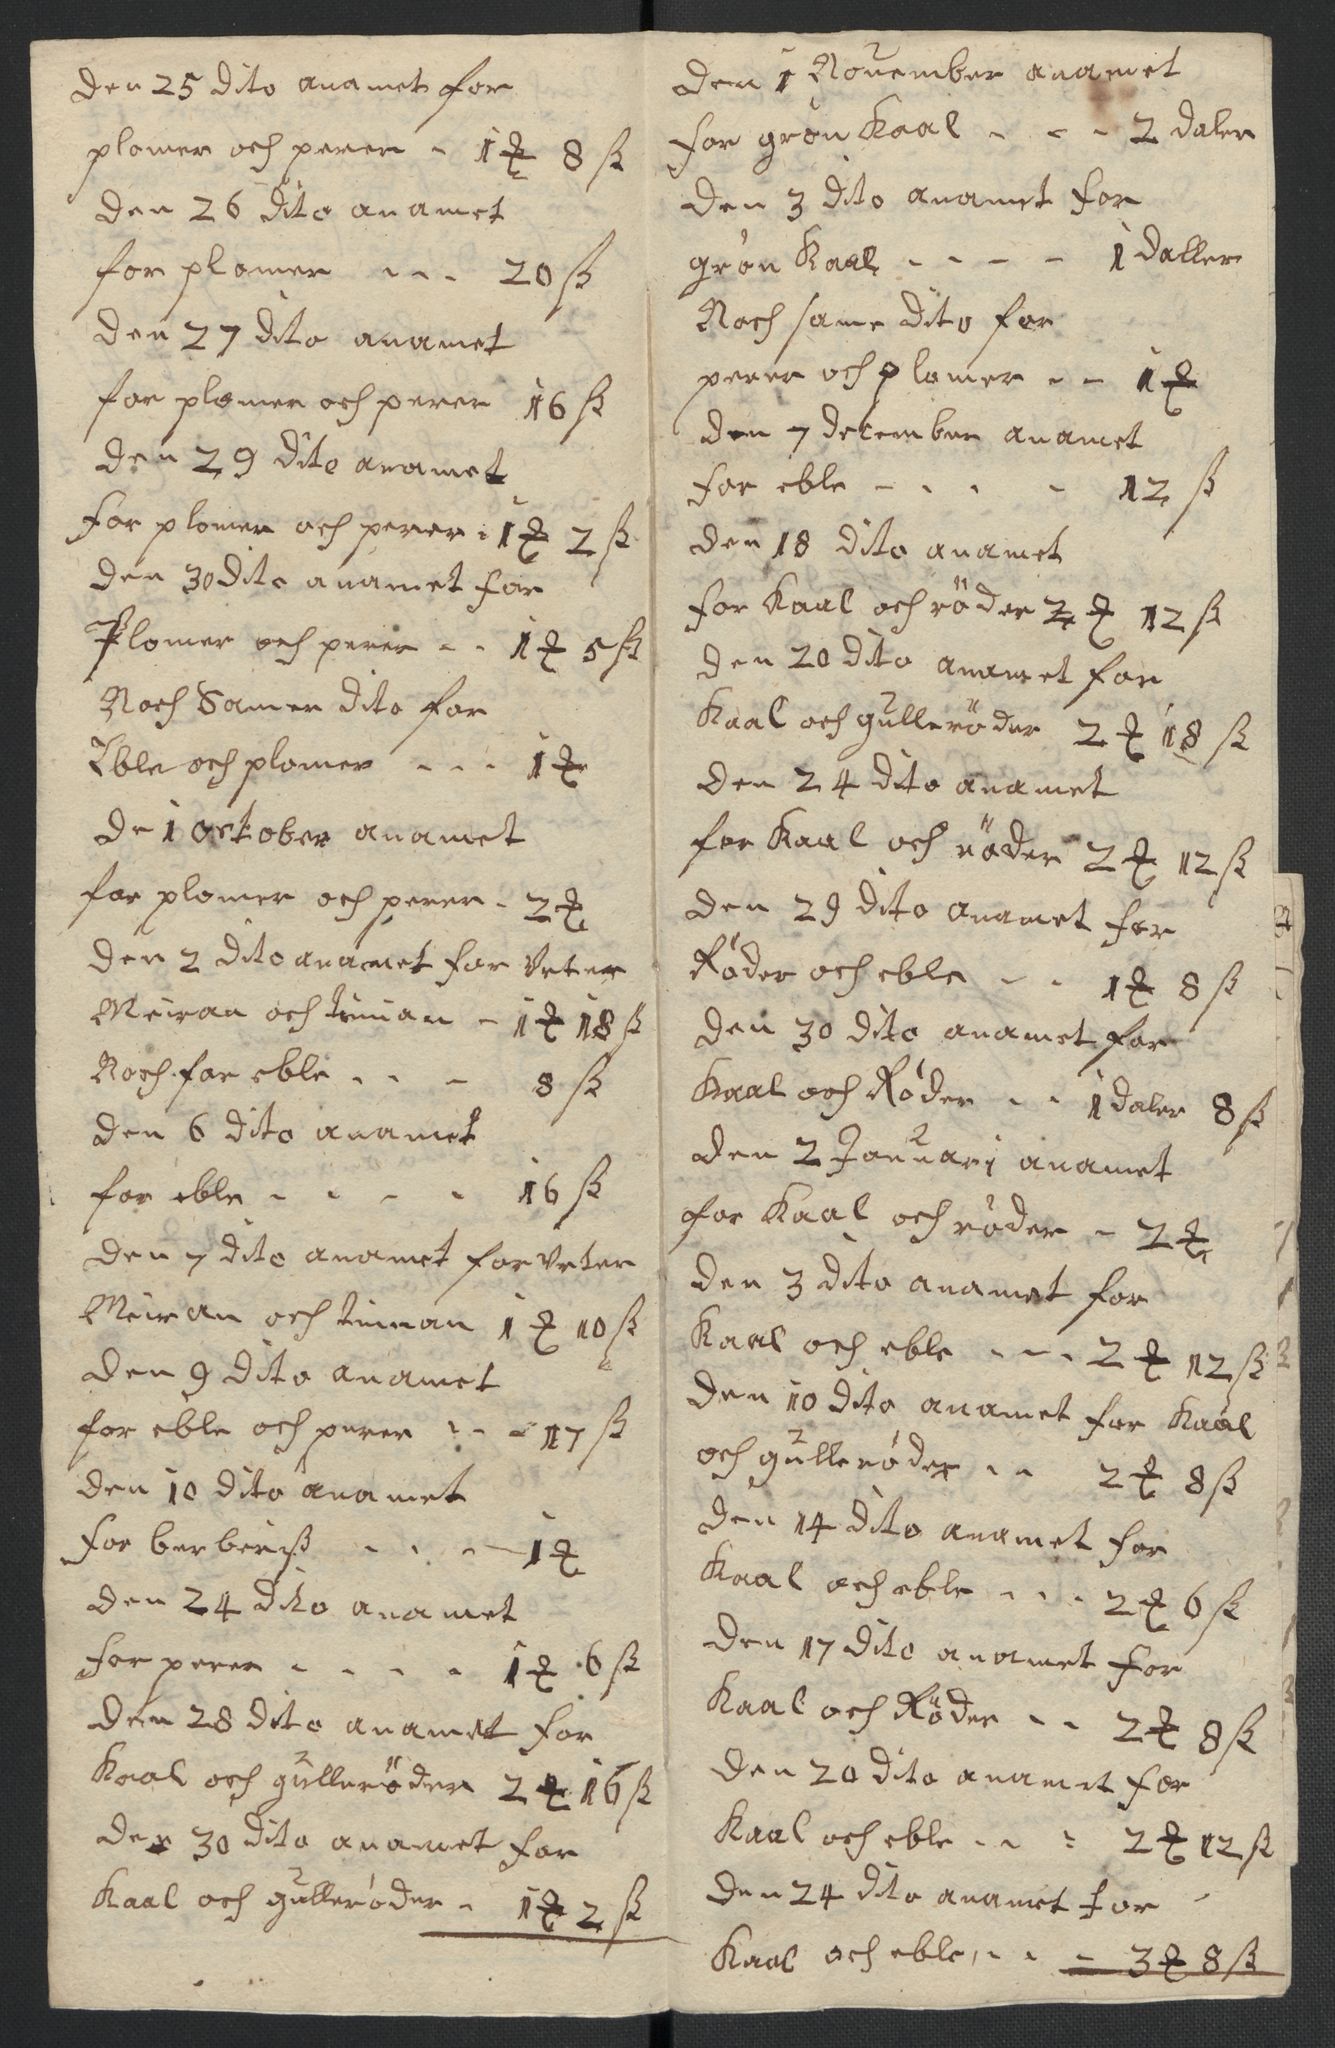 den 25 dito anamet for
plomer och perer - 1 ꝶ 8 ß
den 26 dito anamet
for plomer - - - 20 ß
den 27 dito anamet
for plomer och perer 16 ß
den 29 dito anamet
for plomer och perer - 1 ꝶ 2 ß
den 30 dito anamet for
Plomer och perer - - 1 ꝶ 5 ß
Noch Samer dito for
Eble och plomer - - - 1 ꝶ
de 1 ocktober anamet
for plomer och perer - 2 ꝶ
den 2 dito anamet for Urter
Meiran och timian - 1 ꝶ 18 ß
Noch for eble - - - 8 ß
den 6 dito anamet
for eble - - - - 16 ß
den 7 dito anamet for Urter
Meiran och timian 1 ꝶ 10 ß
den 9 dito anamet
for eble och perer - - - 17 ß
den 10 dito anamet
for berberiß - - - - 1 ꝶ
den 24 dito anamet
for perer - - - - 1 ꝶ 6 ß
den 28 dito anamet for
Kaal och gulleröder 2 ꝶ 16 ß
den 30 dito anamet for
Kaal och gulleröder - 1 ꝶ 2 ß
den 1 November anamet
for grön Kaal - - - 2 daler
den 3 dito anamet for
grön Kaal - - - - 1 daller
Noch same dito for
perer och plomer - - 1 ꝶ
den 7 december anamet
for eble - - - - 12 ß
den 18 dito anamet
for Kaal och röder 2 ꝶ 12 ß
den 20 dito anamet for
Kaal och gulleröder 2 ꝶ 18 ß
den 24 dito anamet
for Kaal och röder 2 ꝶ 12 ß
den 29 dito anamet for
Röder och eble - - 1 ꝶ 8 ß
den 30 dito anamet for
Kaal och Röder - - 1 daler 8 ß
den 2 Januari anamet
for Kaal och röder - 2 ꝶ
den 3 dito anamet for
Kaal och eble - - - 2 ꝶ 12 ß
den 10 dito anamet for Kaal
och gulleröder - - 2 ꝶ 8 ß
den 14 dito anamet for
Kaal och eble - - - 2 ꝶ 6 ß
den 17 dito anamet for
Kaal och Röder - - 2 ꝶ 8 ß
den 20 dito anamet for
Kaal och eble - - - 2 ꝶ 12 ß
den 24 dito anamet for
Kaal och eble - - - 3 ꝶ 8 ß